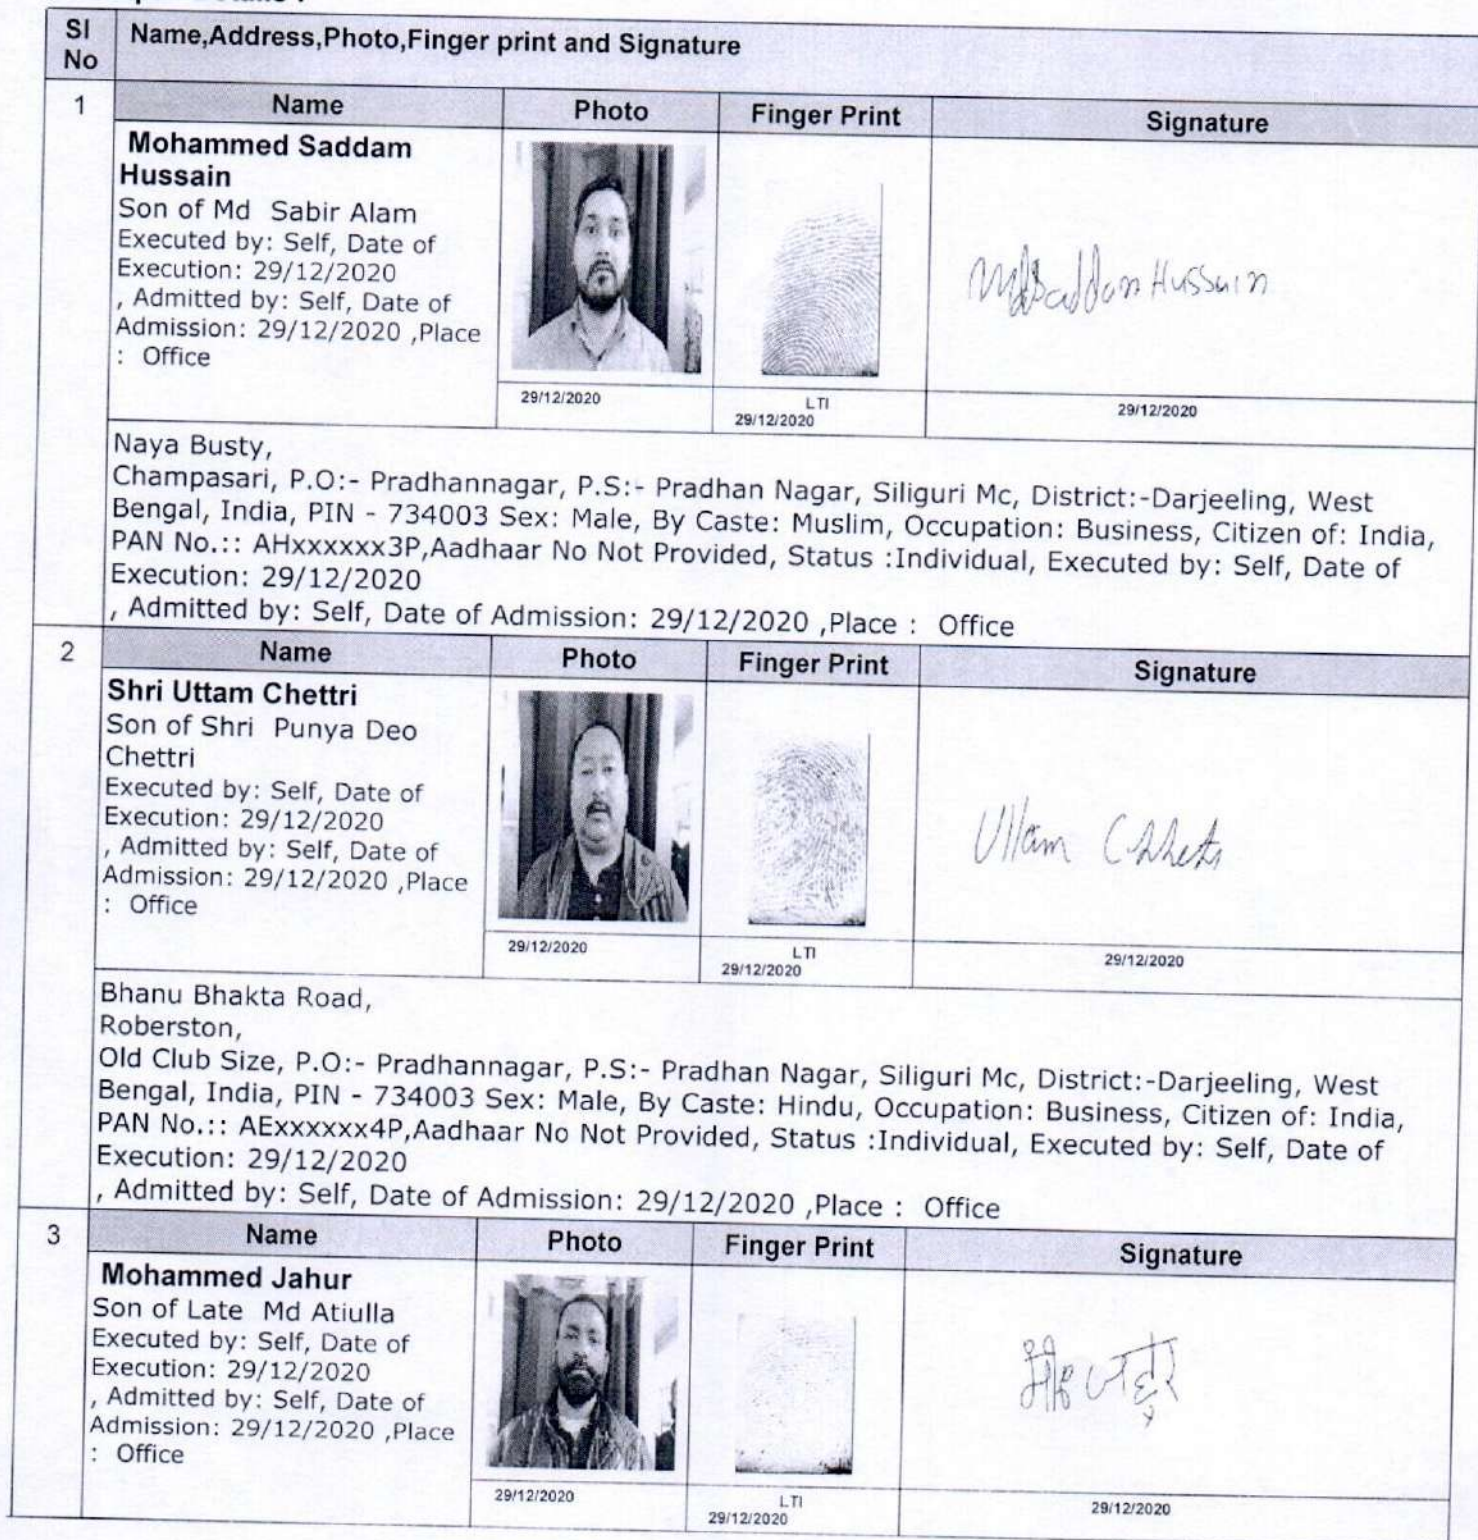 Sl No
Name,Address,Photo,Finger print and Signature
1
Name
Photo
Finger Print
Signature
Mohammed Saddam
Hussain
Son of Md Sabir Alam
Executed by: Self, Date of
Execution: 29/12/2020
, Admitted by: Self, Date of
Admission: 29/12/2020 ,Place
: Office
Md Saddam Hussain
29/12/2020
LTI
29/12/2020
29/12/2020
Naya Busty,
Champasari, P.O:- Pradhannagar, P.S:- Pradhan Nagar, Siliguri Mc, District:-Darjeeling, West
Bengal, India, PIN - 734003 Sex: Male, By Caste: Muslim, Occupation: Business, Citizen of: India,
PAN No.:: AHxxxxxx3P,Aadhaar No Not Provided, Status :Individual, Executed by: Self, Date of
Execution: 29/12/2020
, Admitted by: Self, Date of Admission: 29/12/2020 ,Place : Office
2
Name
Photo
Finger Print
Signature
Shri Uttam Chettri
Son of Shri Punya Deo
Chettri
Executed by: Self, Date of
Execution: 29/12/2020
, Admitted by: Self, Date of
Admission: 29/12/2020 ,Place
: Office
Uttam
29/12/2020
LTI
29/12/2020
29/12/2020
Bhanu Bhakta Road,
Roberston,
Old Club Size, P.O:- Pradhannagar, P.S:- Pradhan Nagar, Siliguri Mc, District:-Darjeeling, West
Bengal, India, PIN - 734003 Sex: Male, By Caste: Hindu, Occupation: Business, Citizen of: India,
PAN No.:: AExxxxxx4P,Aadhaar No Not Provided, Status :Individual, Executed by: Self, Date of
Execution: 29/12/2020
, Admitted by: Self, Date of Admission: 29/12/2020 ,Place : Office
3
Name
Photo
Finger Print
Signature
Mohammed Jahur
Son of Late Md Atiulla
Executed by: Self, Date of
Execution: 29/12/2020
, Admitted by: Self, Date of
Admission: 29/12/2020 ,Place
: Office
29/12/2020
LTI
29/12/2020
29/12/2020